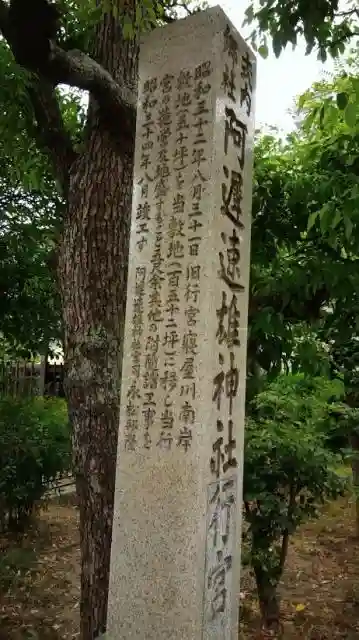 式内
御社
阿遅速雄神社行宮
昭和三十二年八月三十一日旧行宮寝屋川南岸
敷地(五十坪)を当敷地(一百五十二坪)に移し当行
宮の造営及地盛すると
其他の附随諸工事を
昭和三十四年八月竣工す
阿遅速雄神社宮司